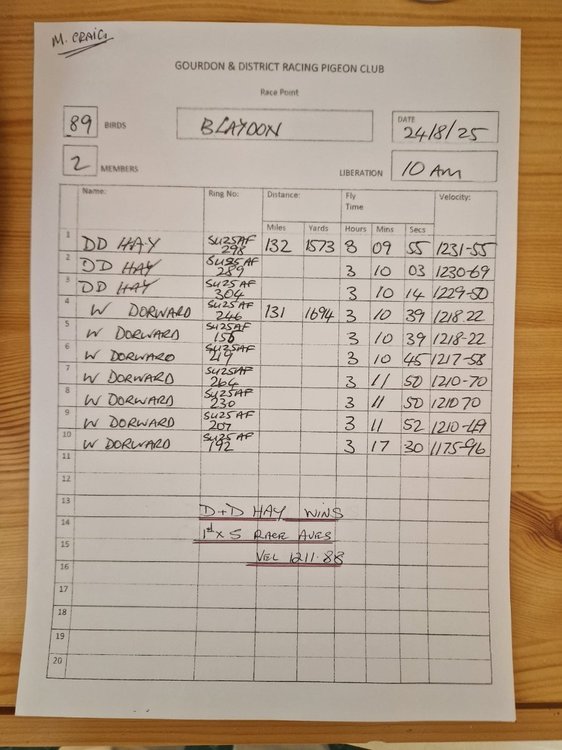 M. CRAIG
GOURDON & DISTRICT RACING PIGEON CLUB
Race Point
89 BIRDS BLAYDON DATE 24/8/25
2 MEMBERS LIBERATION 10 AM
Name: Ring No: Distance: Fly Time Velocity:
Miles Yards Hours Mins Secs
1 DD HAY SU25AF 298 132 1573 3 09 55 1231-55
2 DD HAY SU25AF 289 3 10 03 1230-69
3 DD HAY SU25AF 304 3 10 14 1229-50
4 W DORWARD SU25AF 246 131 1694 3 10 39 1218-22
5 W DORWARD SU25AF 3 10 39 1218-22
6 W DORWARD SU25AF 3 10 45 1217-58
7 W DORWARD SU25AF 264 3 11 50 1210-70
8 W DORWARD SU25AF 230 3 11 50 1210 70
9 W DORWARD SU25AF 207 3 11 52 1210-49
10 W DORWARD SU25AF 192 3 17 30 1175-96
11
12
13 D+D HAY WINS
14 1st X 5 RACE AVES
15 VEL 1211.88
16
17
18
19
20